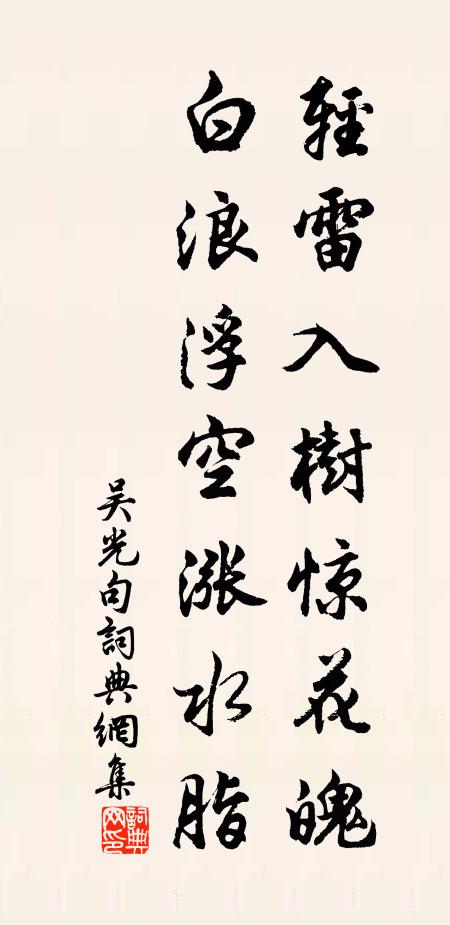 輕雷入樹惊花魄
白浪浮空漲水脂
吴光句詞典網集
詞典